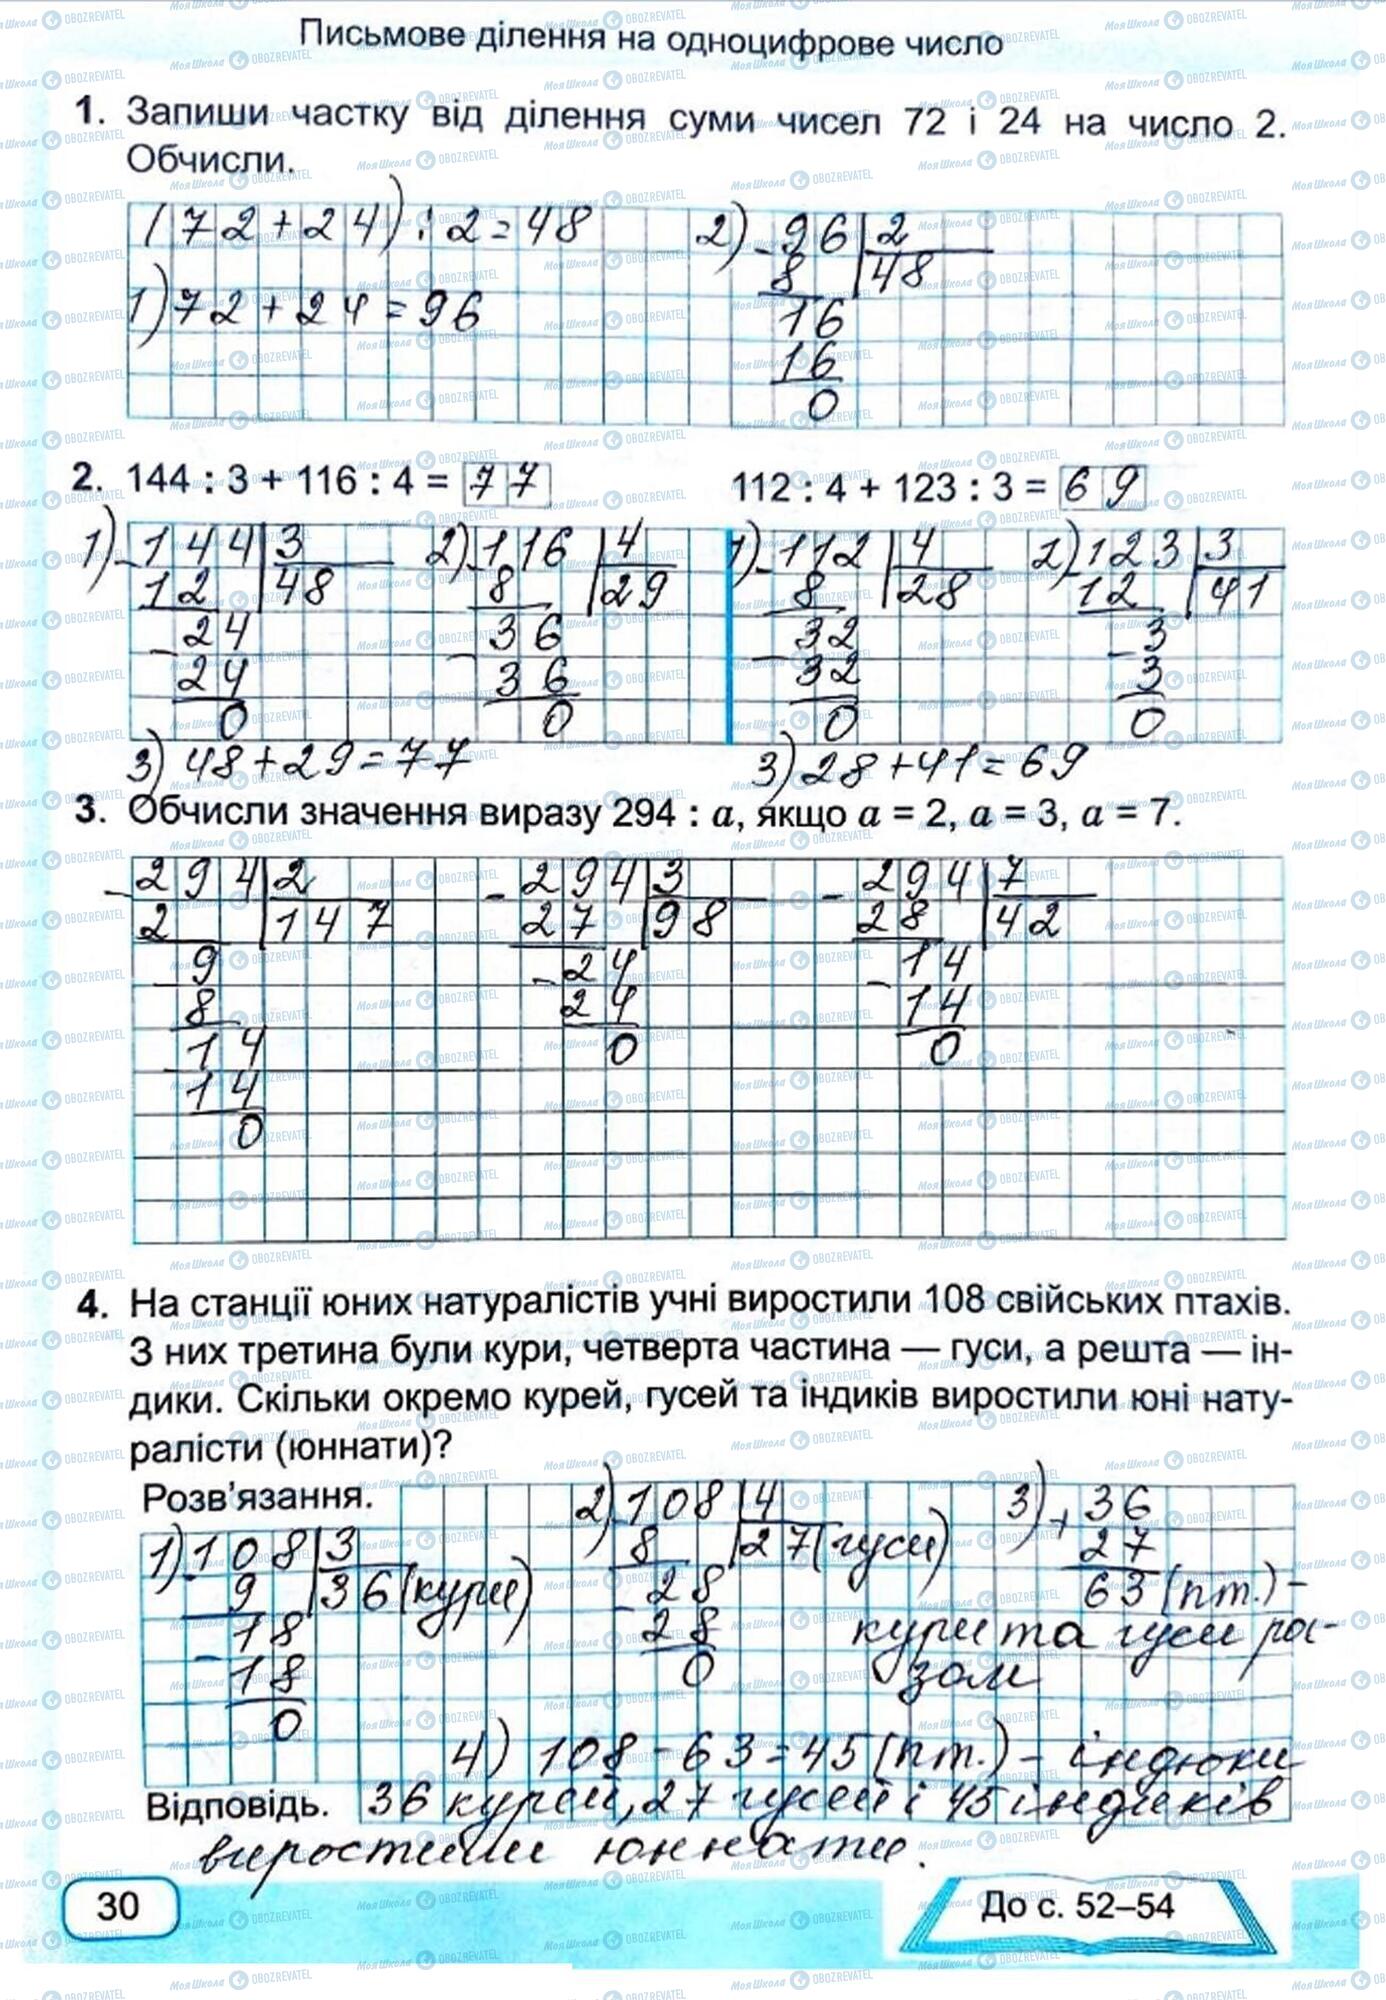 Письмове ділення на одноцифрове число
1. Запиши частку від ділення суми чисел 72 і 24 на число 2.
Обчисли.
(72+24):2=48
1) 72+24=96
2) 96 2
8 48
16
16
0
2. 144 : 3 + 116 : 4 = 77
112 : 4 + 123 : 3 = 69
1) 144 3
12 48
24
24
0
2) 116 4
8 29
36
36
0
1) 112 4
8 28
32
32
0
2) 123 3
12 41
3
3
0
3) 48+29=77
3) 28+41=69
3. Обчисли значення виразу 294 : a, якщо a = 2, a = 3, a = 7.
294 2
2 147
9
8
14
14
0
294 3
27 98
24
24
0
294 7
28 42
14
14
0
4. На станції юних натуралістів учні виростили 108 свійських птахів.
З них третина були кури, четверта частина — гуси, а решта — ін-
дики. Скільки окремо курей, гусей та індиків виростили юні нату-
ралісти (юннати)?
Розв'язання.
1) 108 3
9 36 (кури)
18
18
0
2) 108 4
8 27 (гуси)
28
28
0
3) + 36
27
63 (пт.) –
кури та гуси ра-
зом
4) 108 – 63 = 45 (пт.) – індюки
Відповідь. 36 курей, 27 гусей і 45 індиків
виростили юннати.
30
До с. 52–54
МояШкола OBOZREVATEL